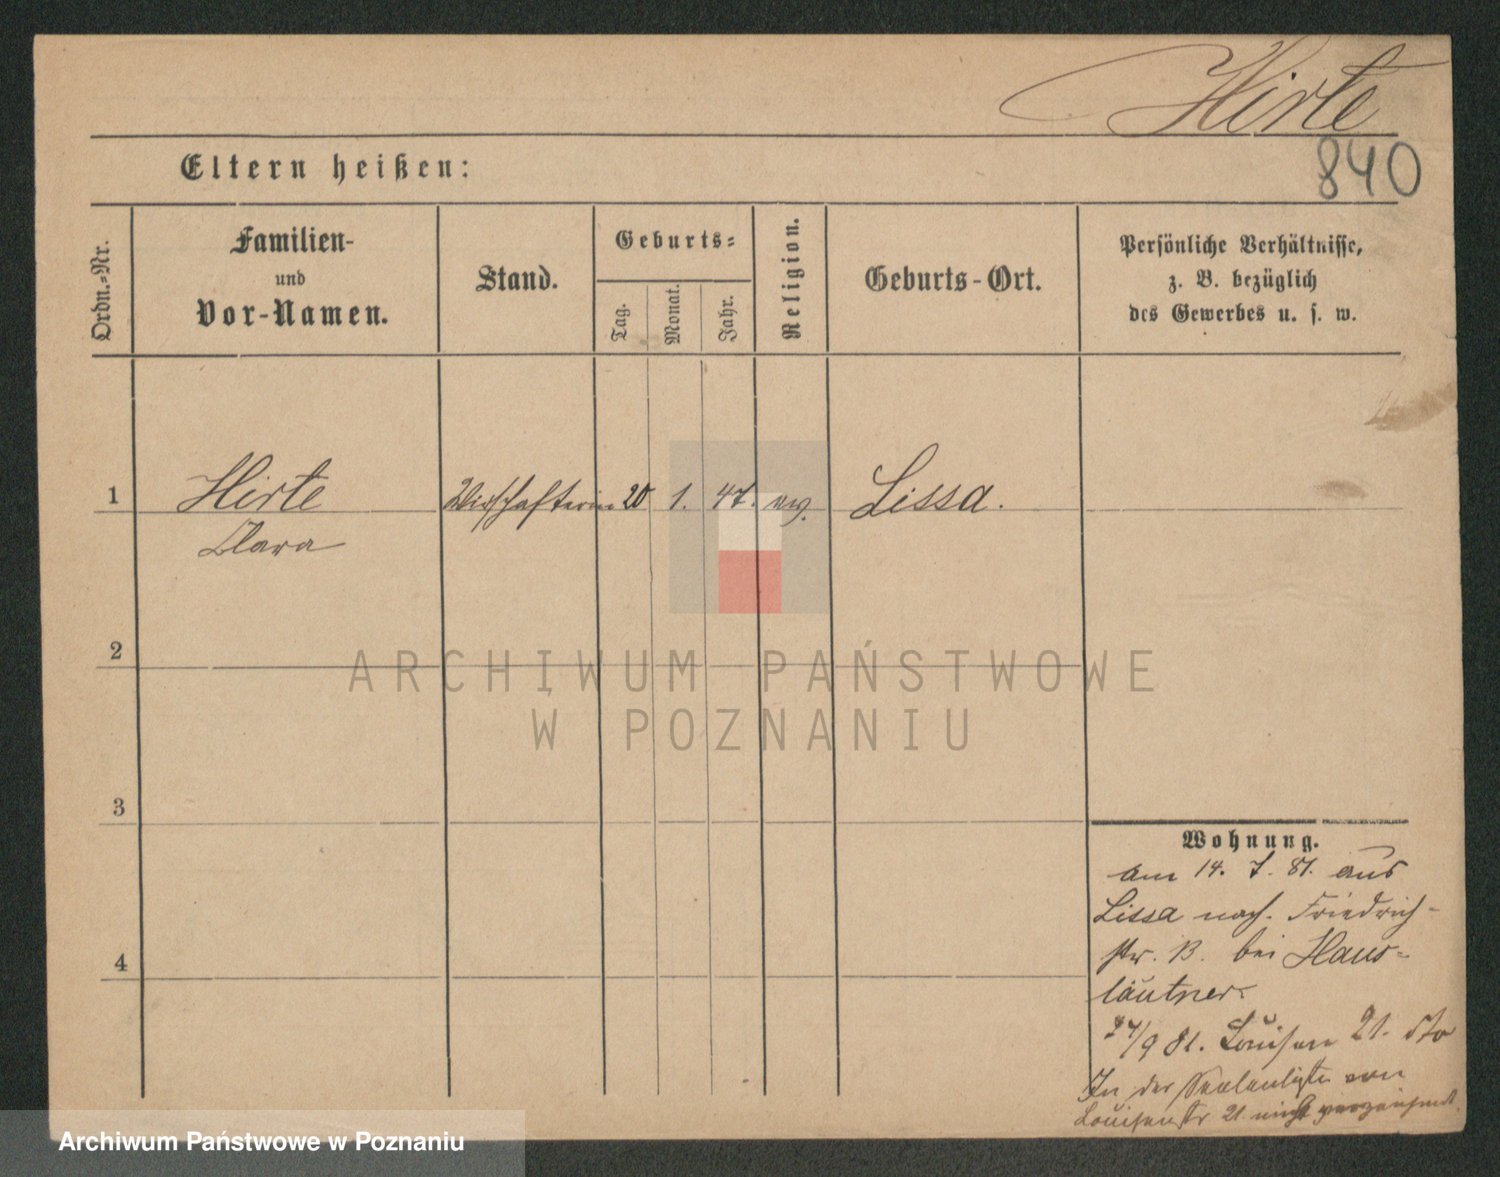 Hirte
840
Eltern heißen:
Ordn.-Nr.
Familien-
und
Vor-Namen.
Stand.
Geburts-
Tag.
Monat.
Jahr.
Religion.
Geburts-Ort.
Persönliche Verhältnisse,
z. B. bezüglich
des Gewerbes u. s. w.
1
Hirte
Clara
Wirthschafterin
20
1.
47.
ev.
Lissa.
2
3
4
ARCHIWUM PAŃSTWOWE
W POZNANIU
Wohnung.
am 14. 7. 81. aus
Lissa nach Friedrich-
str. 13. bei Haus-
läutner.
24/9 81. Louisen 21.
In der Seelenliste von
Louisenstr 21 nicht verzeichnet.
Archiwum Państwowe w Poznaniu